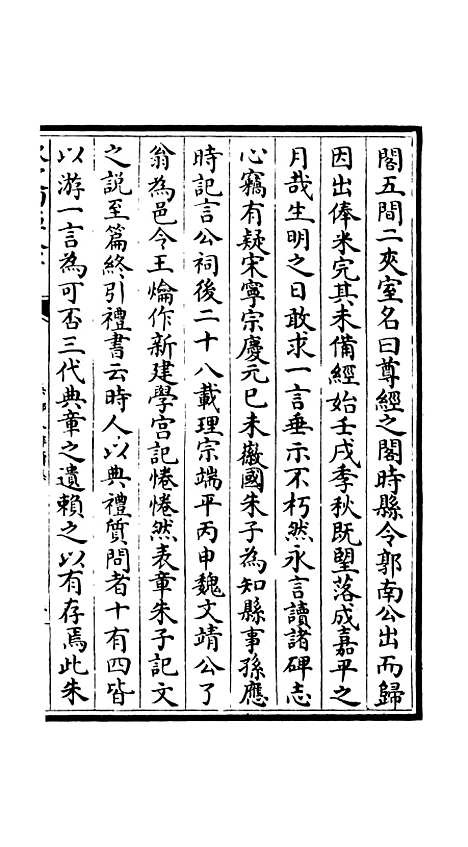 閣五間二夾室名曰尊經之閣時縣令郭南公出而歸
因出俸米完其未備經始壬戌季秋既朢落成嘉平之
月哉生明之日敢求一言垂示不朽然永言讀諸碑志
心竊有疑宋寧宗慶元已未徽國朱子為知縣事孫應
時記言公祠後二十八載理宗端平丙申魏文靖公了
翁為邑令王爚作新建學宫記惓惓然表章朱子記文
之説至篇終引禮書云時人以典禮質問者十有四皆
以游一言為可否三代典章之遺頼之以有存焉此朱